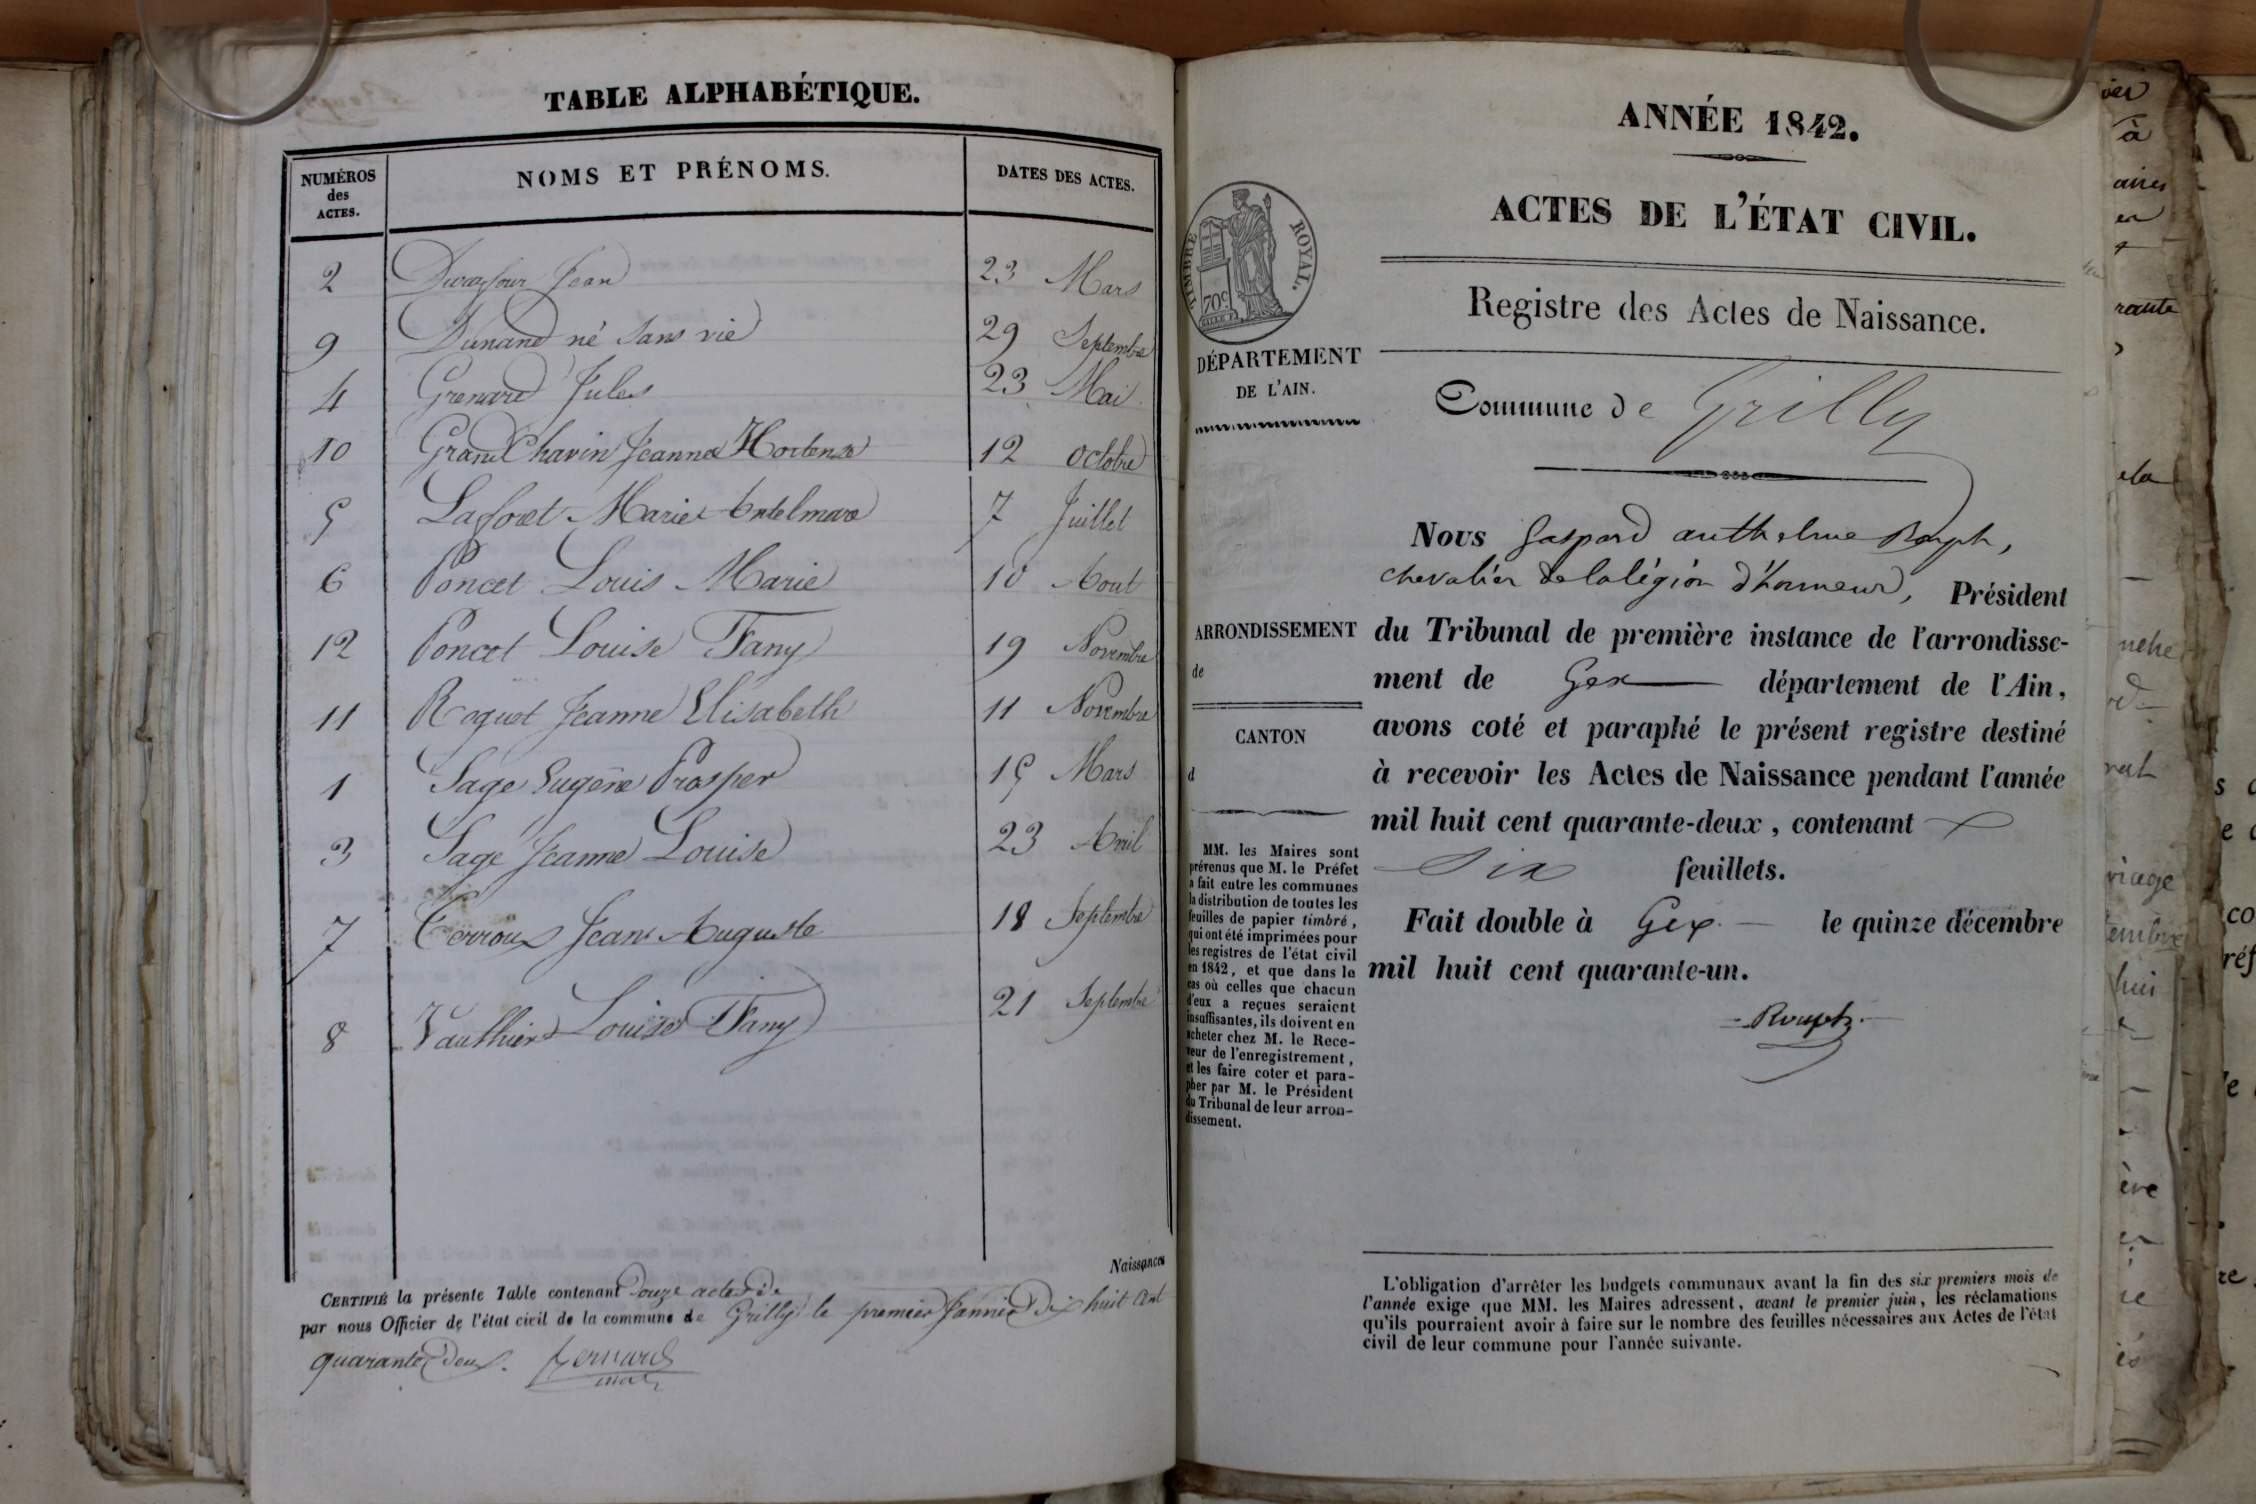 TABLE ALPHABÉTIQUE.
NUMÉROS des ACTES. NOMS ET PRÉNOMS. DATES DES ACTES.
2 Jean 23 Mars
9 Dunand né sans vie 29 Septembre
4 Grenard Jules 23 Mai
10 Grand Chavin Jeanne Hortense 12 Octobre
5 Laforet Marie Antelmare 7 Juillet
6 Poncet Louis Marie 10 Aout
12 Poncet Louise Fany 19 Novembre
11 Roquet Jeanne Elisabeth 11 Novembre
1 Sage Eugène Prosper 15 Mars
3 Sage Jeanne Louise 23 Avril
7 Terroux Jean Auguste 18 Septembre
8 Vauthier Louise Fany 21 Septembre
Naissances
CERTIFIÉ la présente Table contenant Douze actes de
par nous Officier de l'état civil de la commune de Grilly le premier Janvier Dix huit Cent
quarante Deux.
ANNÉE 1842.
ACTES DE L'ÉTAT CIVIL.
TIMBRE ROYAL.
70c
Registre des Actes de Naissance.
DÉPARTEMENT
DE L'AIN.
Commune de Grilly
Nous Gaspard anthelme Rouph,
chevalier de la légion d'honneur, Président
ARRONDISSEMENT
de
du Tribunal de première instance de l'arrondisse-
ment de Gex département de l'Ain,
avons coté et paraphé le présent registre destiné
à recevoir les Actes de Naissance pendant l'année
mil huit cent quarante-deux, contenant
six feuillets.
Fait double à Gex le quinze décembre
mil huit cent quarante-un.
Rouph.
CANTON
d
MM. les Maires sont
prévenus que M. le Préfet
a fait entre les communes
la distribution de toutes les
feuilles de papier timbré,
qui ont été imprimées pour
les registres de l'état civil
en 1842, et que dans le
cas où celles que chacun
d'eux a reçues seraient
insuffisantes, ils doivent en
acheter chez M. le Rece-
veur de l'enregistrement,
et les faire coter et para-
pher par M. le Président
du Tribunal de leur arron-
dissement.
L'obligation d'arrêter les budgets communaux avant la fin des six premiers mois de
l'année exige que MM. les Maires adressent, avant le premier juin, les réclamations
qu'ils pourraient avoir à faire sur le nombre des feuilles nécessaires aux Actes de l'état
civil de leur commune pour l'année suivante.